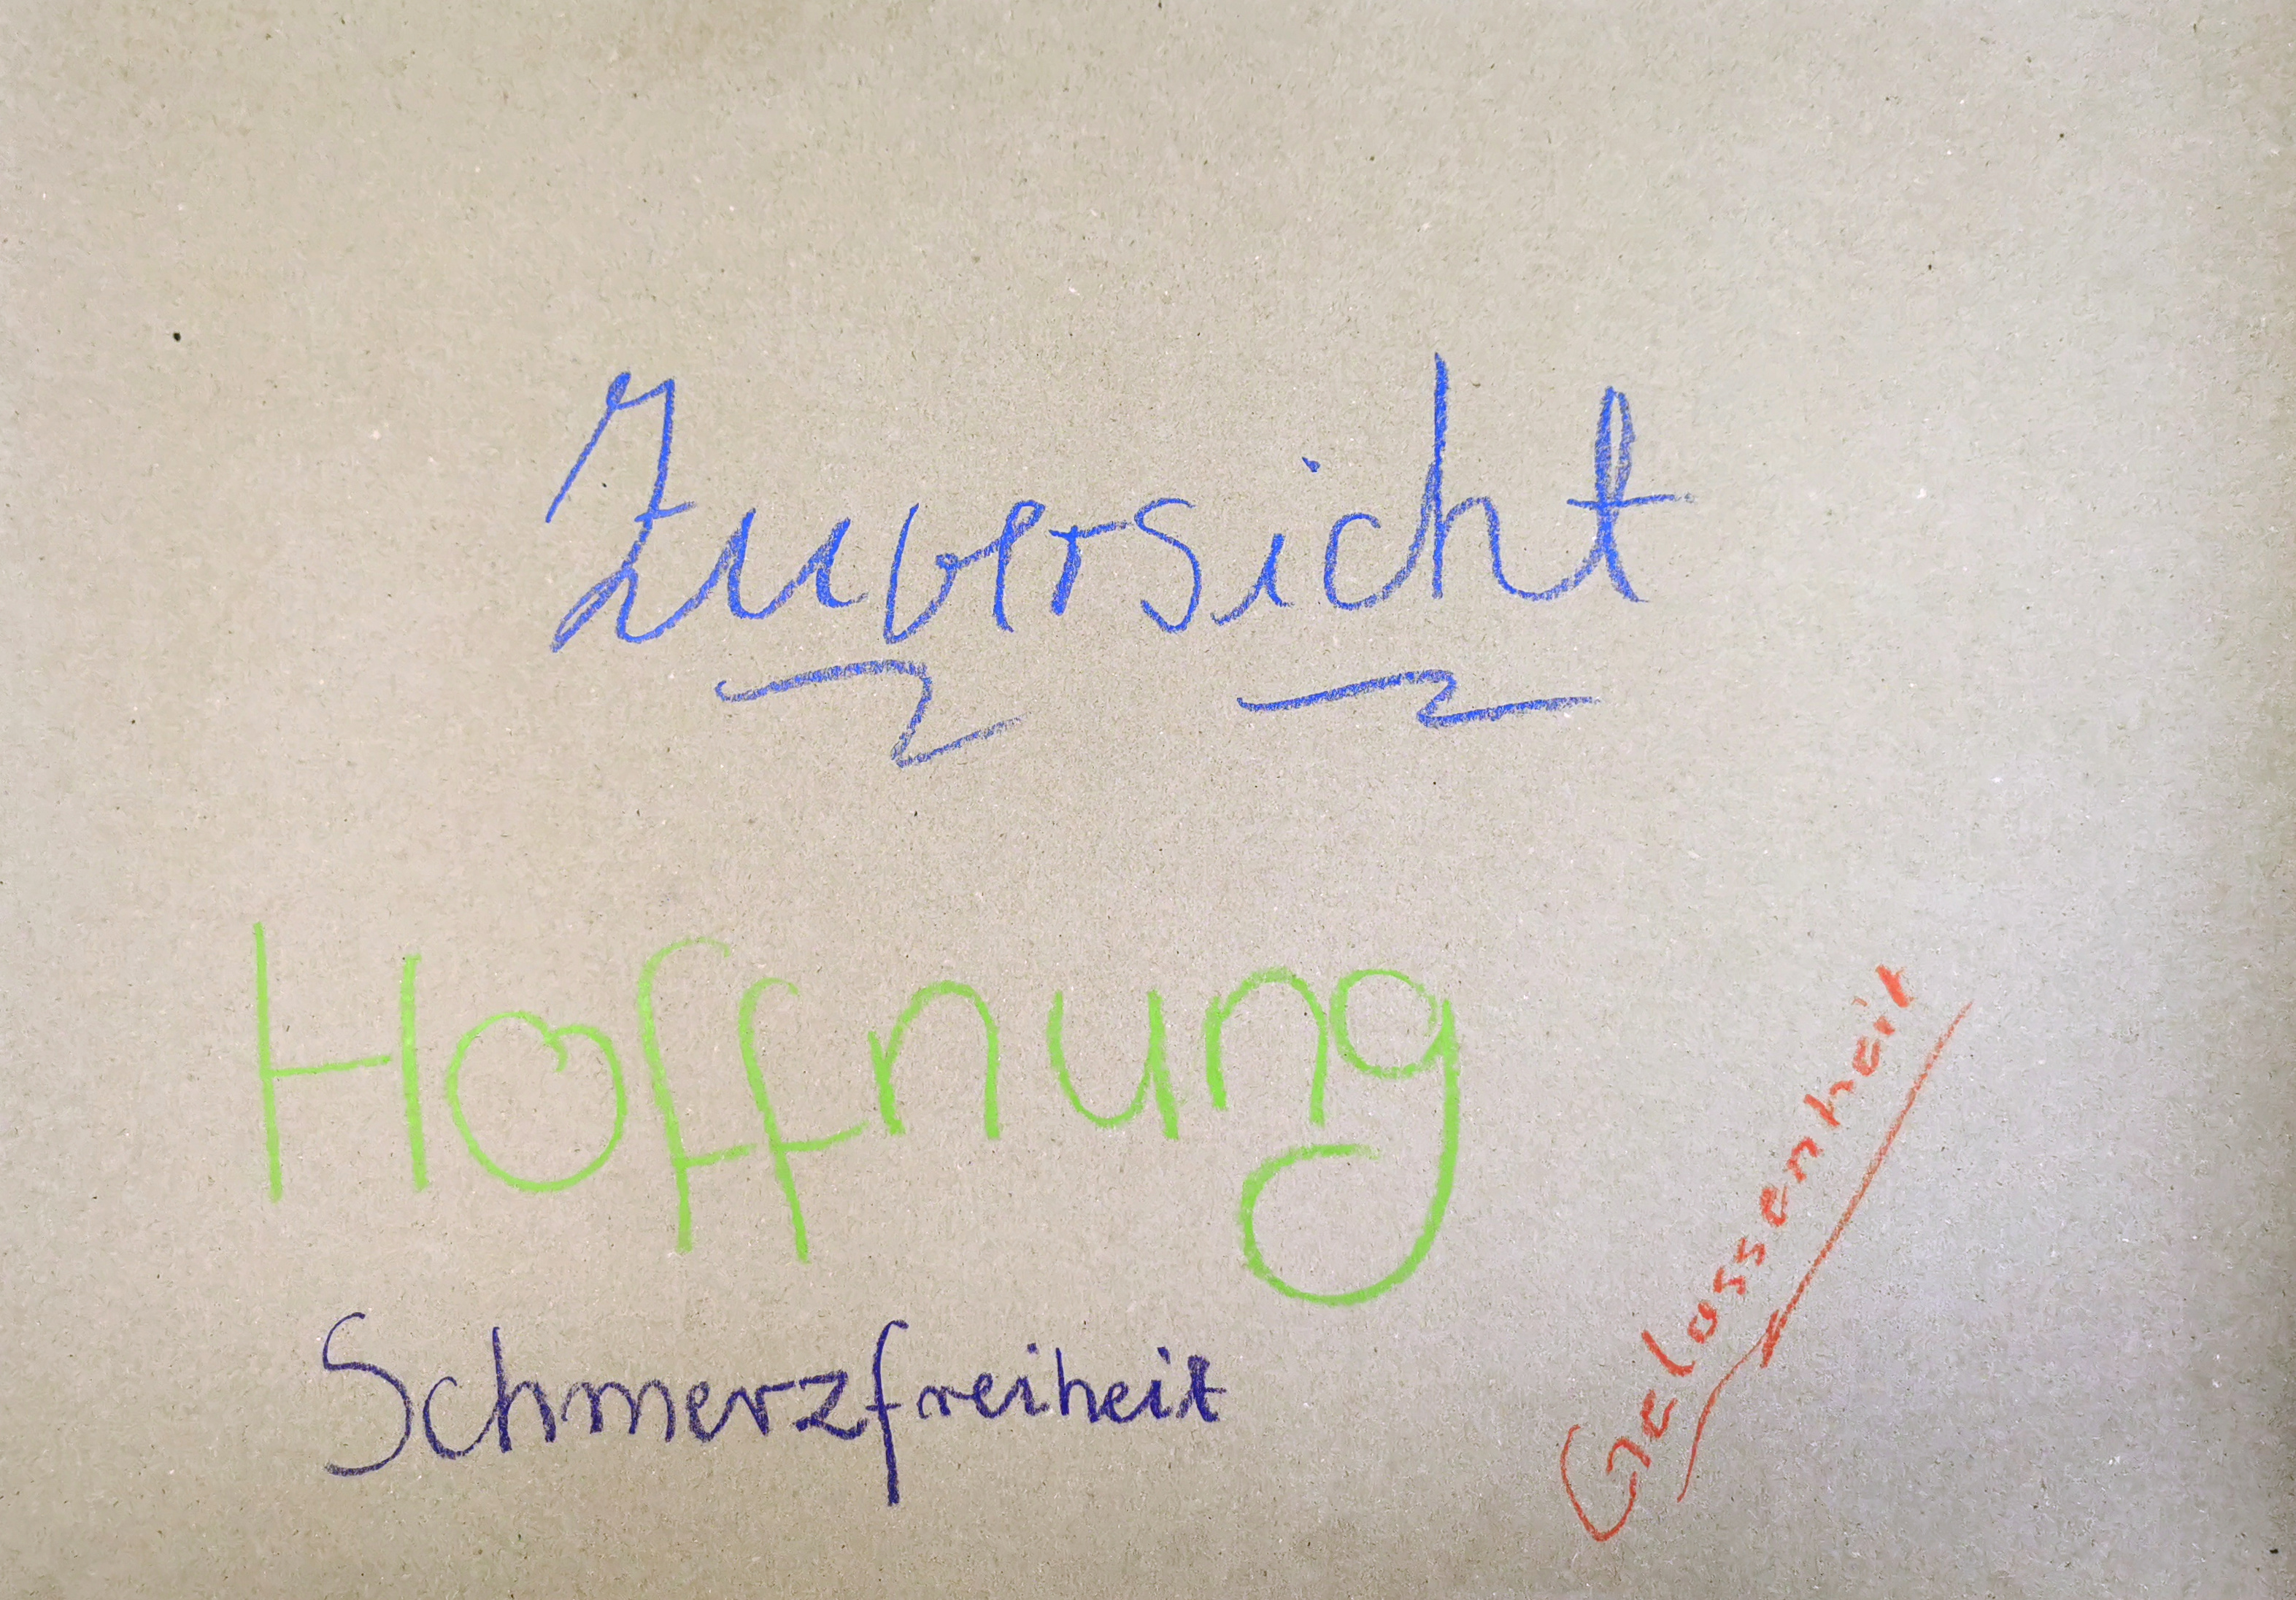 Zuversicht
Hoffnung
Schmerzfreiheit
Gelassenheit